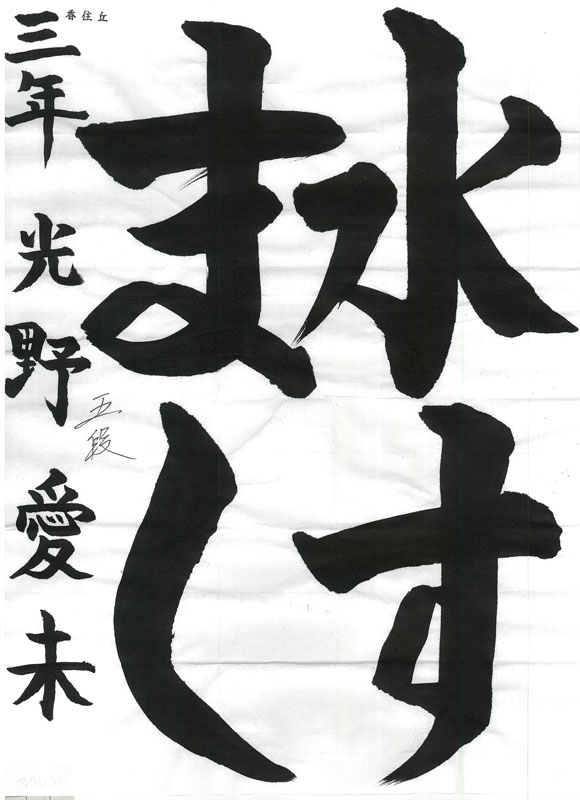 水す
まし
香住丘
三年 光野愛未
五段